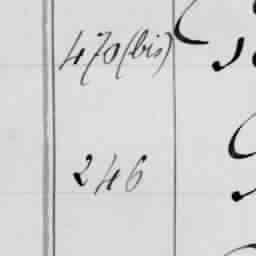 470 (bis)
246